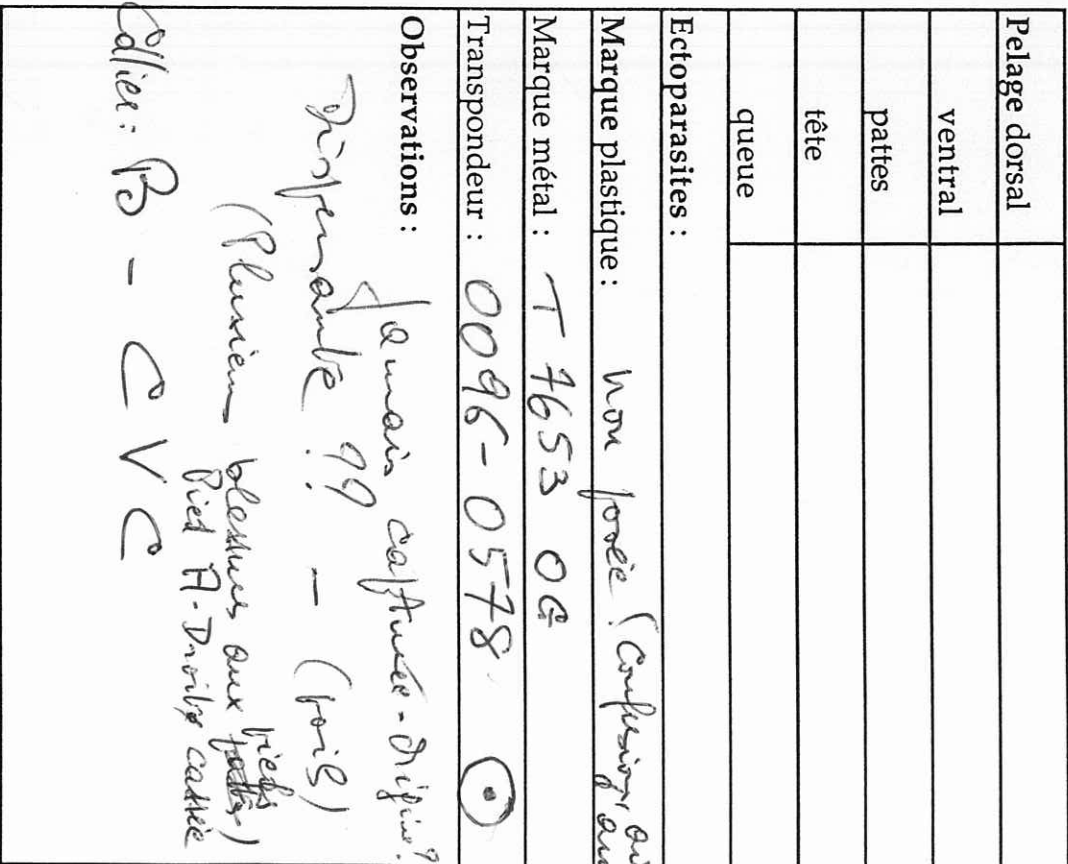 Pelage dorsal
ventral
pattes
tête
queue
Ectoparasites :
Marque plastique : non posée (Confusion
Marque métal : T 7653 OG
Transpondeur : 0096-0578
Observations : Jamais capturée - Origine ?
Dispersante ?? - (poils)
(Plusieurs blessures aux pieds)
Pied A-Droite cassée
Collier : B - C V C